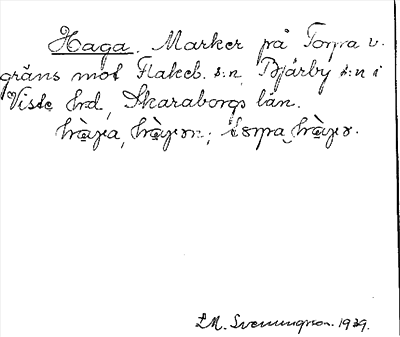 Haga. Marker på Torpa v.
gräns mot Flakeb. s:n, Bjärby s:n i
Viste hd, Skaraborgs län.
L.M. Svenungsson. 1939.